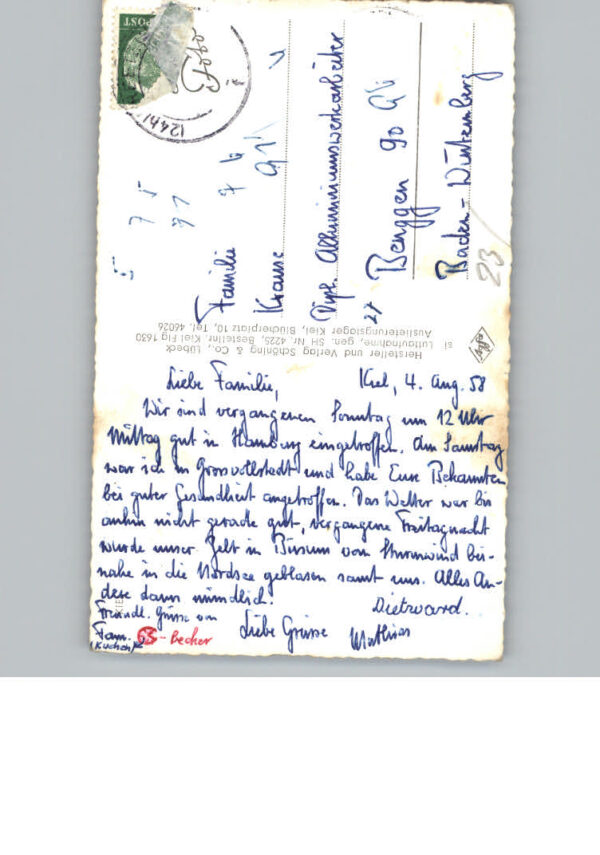 Liebe Familie,
Kiel, 4. Aug. 58
Wir sind vergangenen Sonntag um 12 Uhr
Mittag gut in Hamburg eingetroffen. Am Samstag
war ich in Grossvollstedt und habe Eure Bekannten
bei guter Gesundheit angetroffen. Das Wetter war bis
anhin nicht gerade gut, vergangene Freitagnacht
wurde unser Zelt in Büsum vom Sturmwind bei-
nahe in die Nordsee geblasen samt uns. Alles An-
dere dann mündlich.
Dietward.
Freundl. Grüsse von
Fam. - Becker
Liebe Grüsse
Mathias
Familie
Krause
Dipl. Alluminiumswerkarbeiter
Benggen 90
Baden-Würtemberg
23
Hersteller und Verlag Schöning & Co., Lübeck
si Luftaufnahme, gen. SH Nr. 4225, Bestellnr. Kiel Flg 1630
Auslieferungslager Kiel, Blücherplatz 10, Tel. 46026
POST